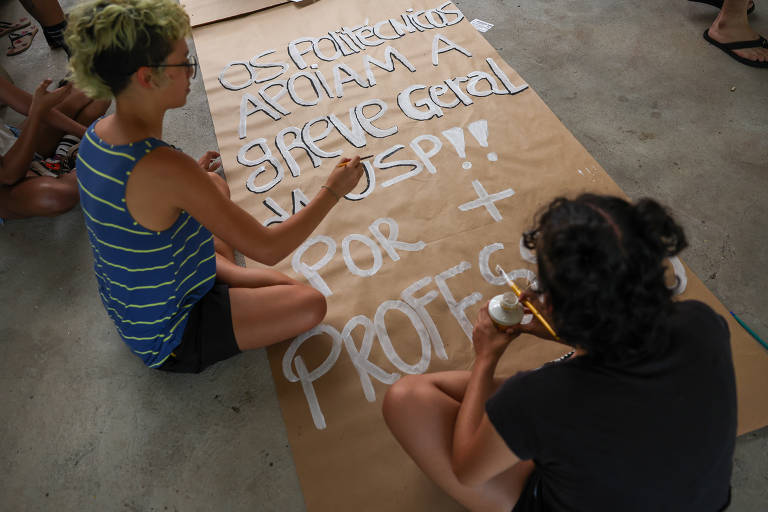 OS POLITÉCNICOS
APOIAM A
greve geral
DA USP!!
POR +
PROFES